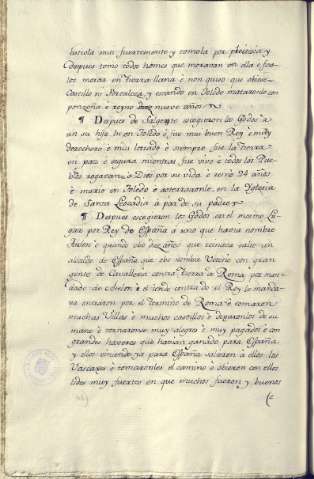 batiola mui fuertemente y tomola por pleitesia y
despues tomo todos homes que moraran en ella e fizo
los morar en tierra llana e non quiso que obiese
Castillo ni Fortaleza, y estando en Toledo mataronlo con
ponzoña e reyno diez nueve años
¶ Despues de Salgente escogieron los Godos a
un su hijo Tu en Toledo e fue mui buen Rey e mui
derechero e mui letrado e siempre fue la tierra
en paz e segura mientras fue vivo e todos los Pue-
blos rogavan a Dios por su vida e reinó 24 años
e murio en Toledo e enterraronle en la Yglesia
de Santa Leocadia a par de su padre
¶ Despues escogieron los Godos en el mesmo Lu-
gar por Rey de España a otro que havia nombre
e quando obo diez años que reinava salio un
alcalde de España que obo nombre con gran
gente de Cavalleria contra tierra de Roma por man-
dado de e el tendo contra do el Rey lo manda-
va entraron por el termino de Roma e tomaron
muchas Villas e muchos castillos e dejaronlos de su
mano e tornaronse muy alegres e muy pagados e con
grandes haveres que havian ganado para España
y ellos viniendo ya para España salieron a ellos los
Vascares e tomaronles el camino e obieron con ellos
lides muy fuertes en que muchos fueron y buenos